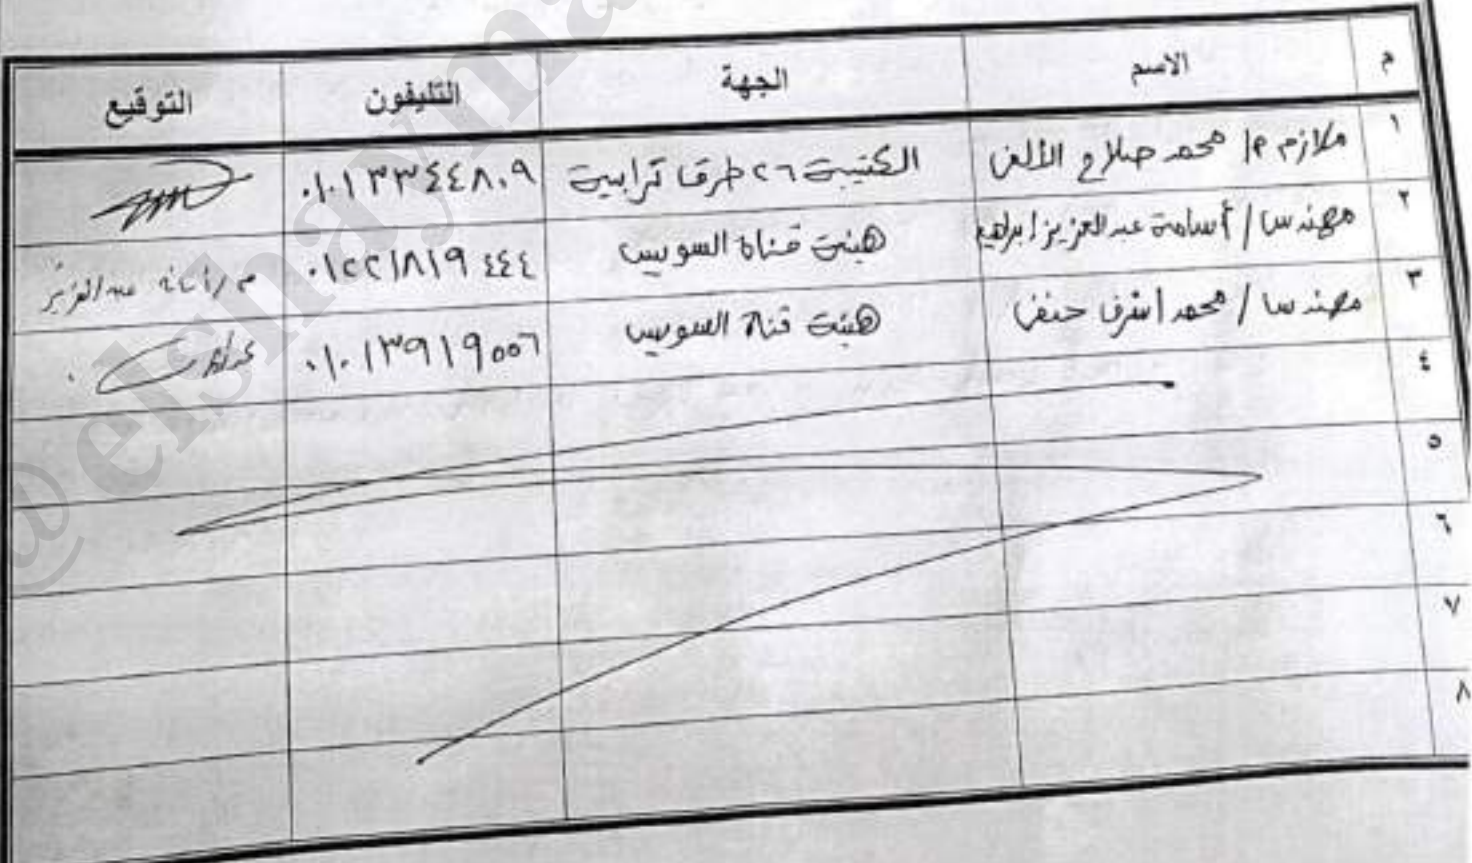 م الاسم الجهة التليفون التوقيع
١ ملازم م/ محمد صلاح الألفى الكتيبة ٢٦ طرق ترابية ٠١٠١٣٣٤٤٨٠٩
٢ مهندس/ أسامة عبد العزيز ابراهيم هيئة قناة السويس ٠١٢٢١٨١٩٤٤٤ م/ أسامة عبد العزيز
٣ مهندس/ محمد أشرف حنفى هيئة قناة السويس ٠١٠١٣٩١٩٥٥٦
٤
٥
٦
٧
٨
@elshayma